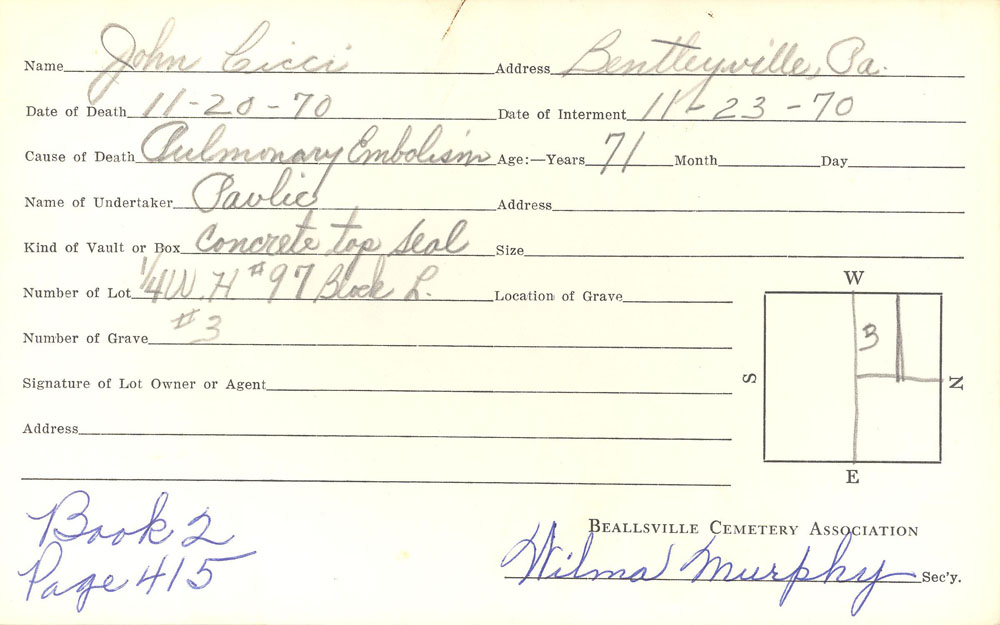 Name John Cicci Address Bentleyville, Pa.
Date of Death 11-20-70 Date of Interment 11-23-70
Cause of Death Pulmonary Embolism Age:—Years 71 Month Day
Name of Undertaker Pavlic Address
Kind of Vault or Box Concrete top seal Size
Number of Lot 1/4 W. H #97 Block L. Location of Grave
Number of Grave #3
Signature of Lot Owner or Agent
Address
W
3
S N
E
Book 2
Page 415
BEALLSVILLE CEMETERY ASSOCIATION
Wilma Murphy Sec'y.